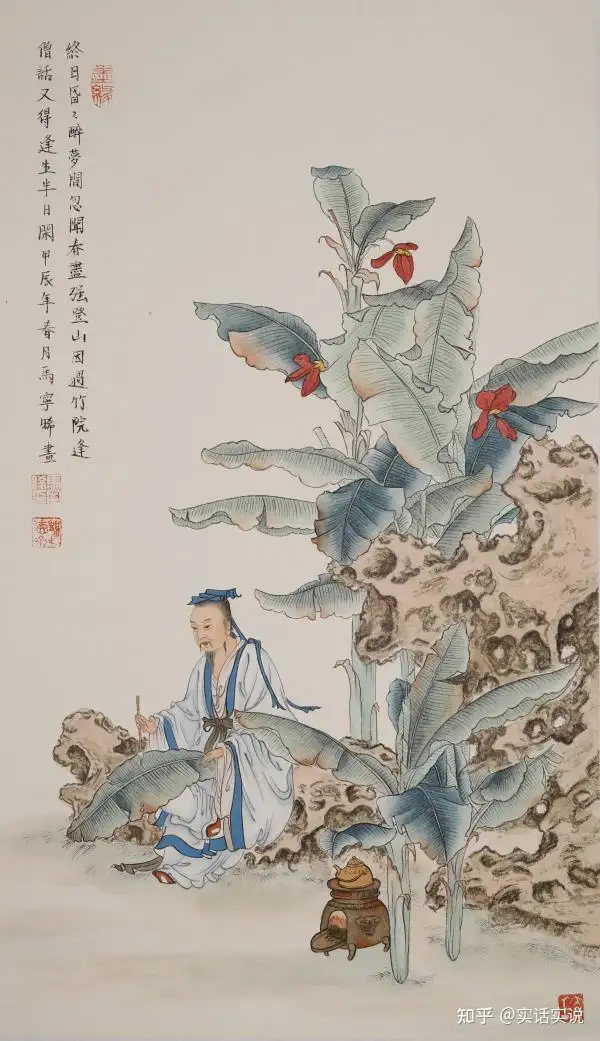 終日昏〻醉夢間忽聞春盡强登山因過竹院逢
僧話又得逢生半日閑甲辰年春月馬寧晞畫
知乎 @实话实说